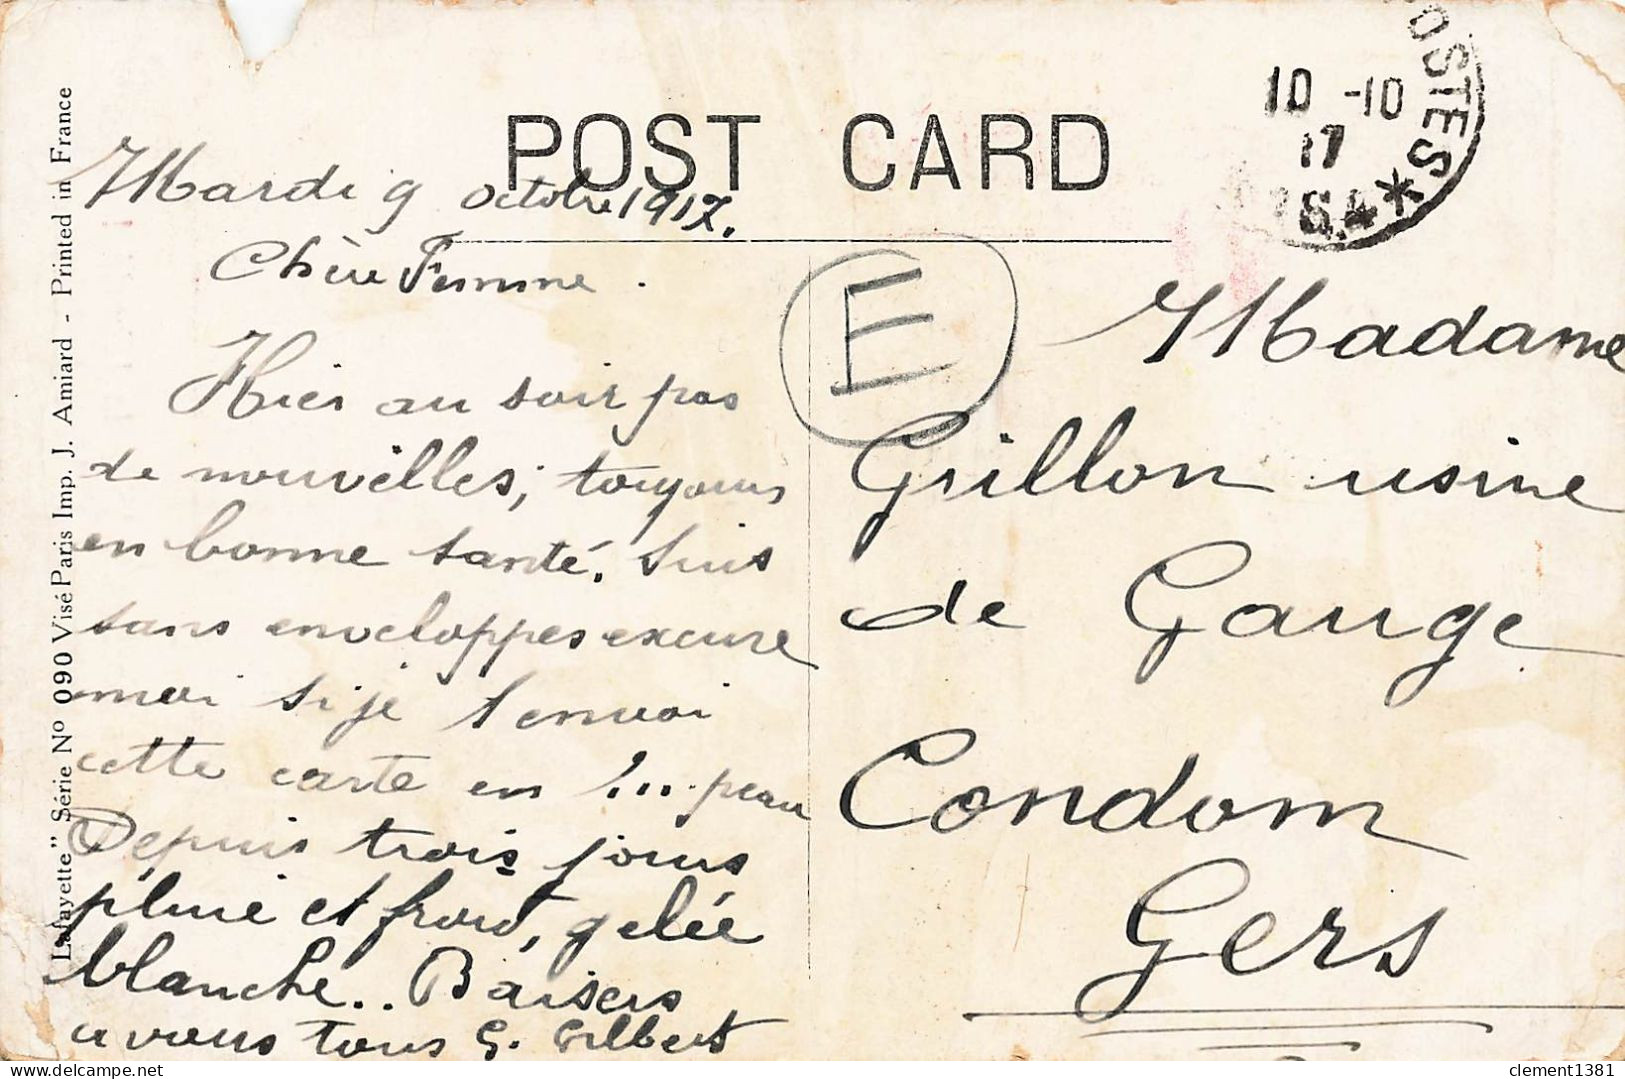 POSTES
10 -10
17
POST CARD
Mardi 9 octobre 1917.
Chère Femme.
E
Hier au soir pas
de nouvelles, toujours
en bonne santé. Suis
sans enveloppes excuse
moi si je t'envoi
cette carte en !... peau
Depuis trois jours
pluie et froid, gelée
blanche.. Baisers
a vous tous G. Gilbert
Madame
Grillon usine
de Gauge
Condom
Gers
Lafayette" Série Nº 090 Visé Paris Imp. J. Amiard - Printed in France
clement1381